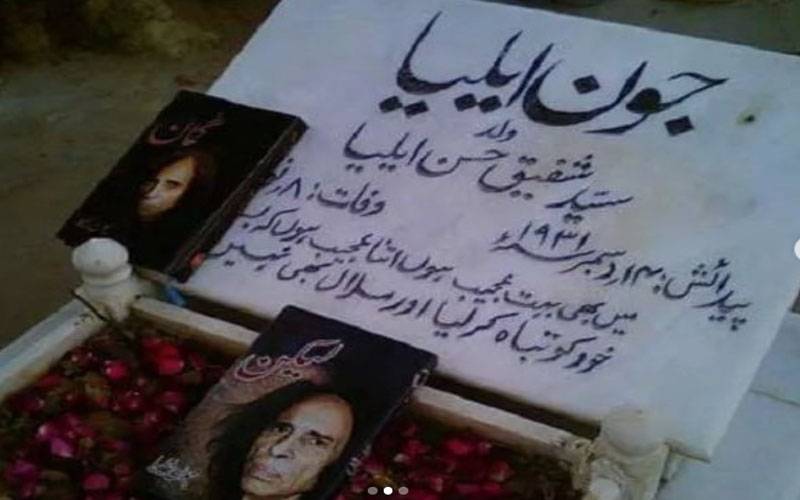 جون ایلیا
ولد
سیّد شفیق حسن ایلیا
پیدائش: ۱۴ دسمبر ۱۹۳۱ء
وفات: ۸
میں بھی بہت عجیب ہوں اتنا عجیب ہوں کہ بس
خود کو تباہ کر لیا اور ملال بھی نہیں
گمان
لیکن